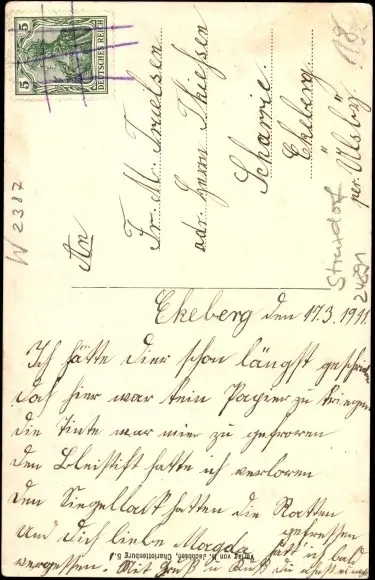 5 5
DEUTSCHES REICH
W 2387
An
Fr. M. Truelsen
adr. Herrn Thießen
Scharrie.
Ekeberg.
per. Ülsby
118.
Strusdorf
24891
Ekeberg den 17.3.1911.
Ich hätte Dier schon längst geschrieben
doch hier war kein Papier zu kriegen
die Tinte war mier zu gefroren
den Bleistift hatte ich verloren
den Siegellack hatten die Ratten
gefressen
und dich liebe Magda hätt ich bald
vergessen. Mit Gruß u Kuß
Verlag von H. Jacobsen, Charlottenburg 5.